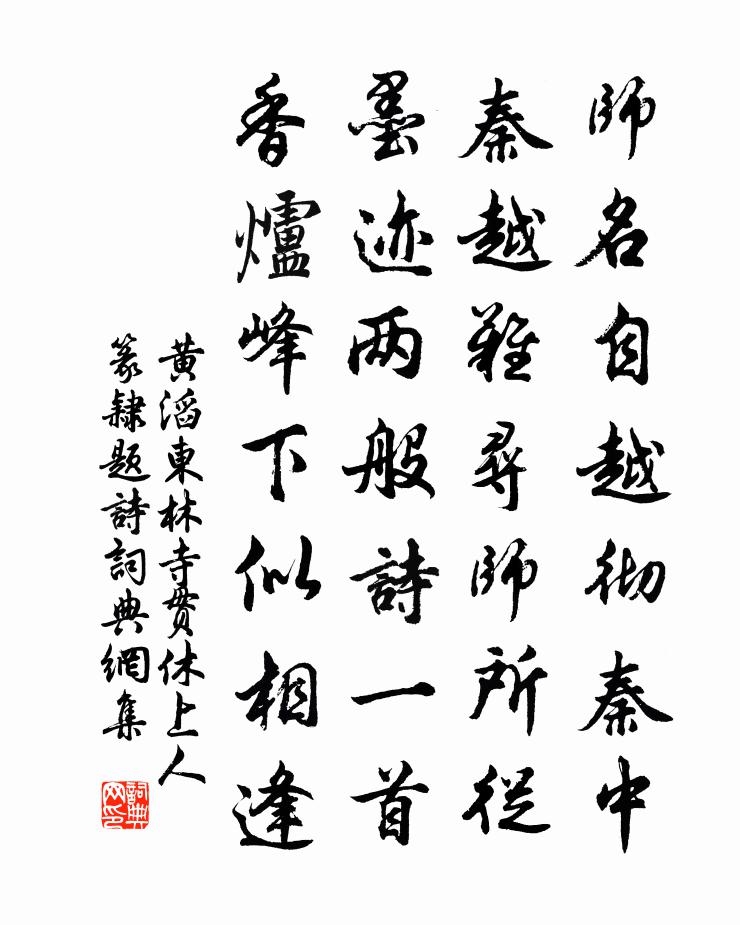 師名自越徹秦中
秦越難尋師所從
墨迹两般詩一首
香爐峰下似相逢
黄滔東林寺貫休上人
篆隸题詩詞典網集
詞典网印